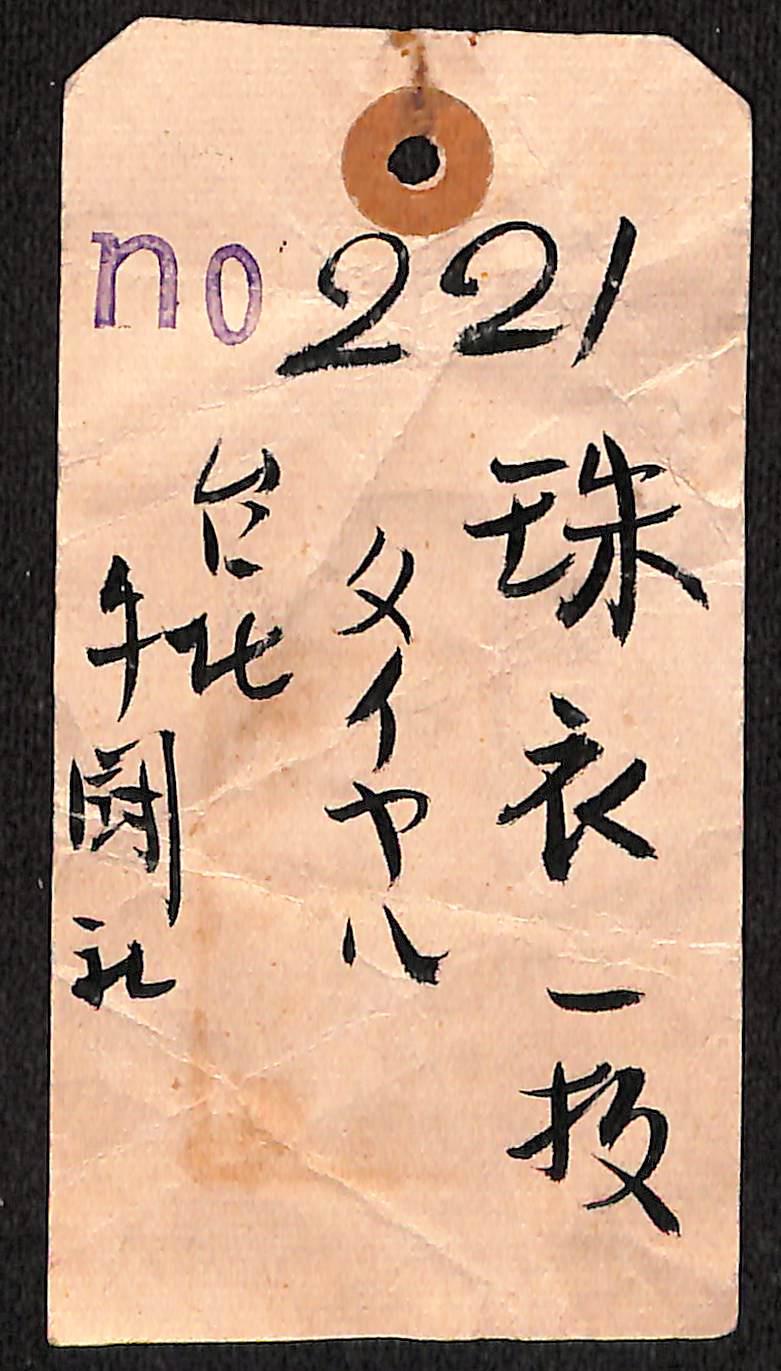 no 221
珠衣一枚
タイヤル
台北
牛闘社